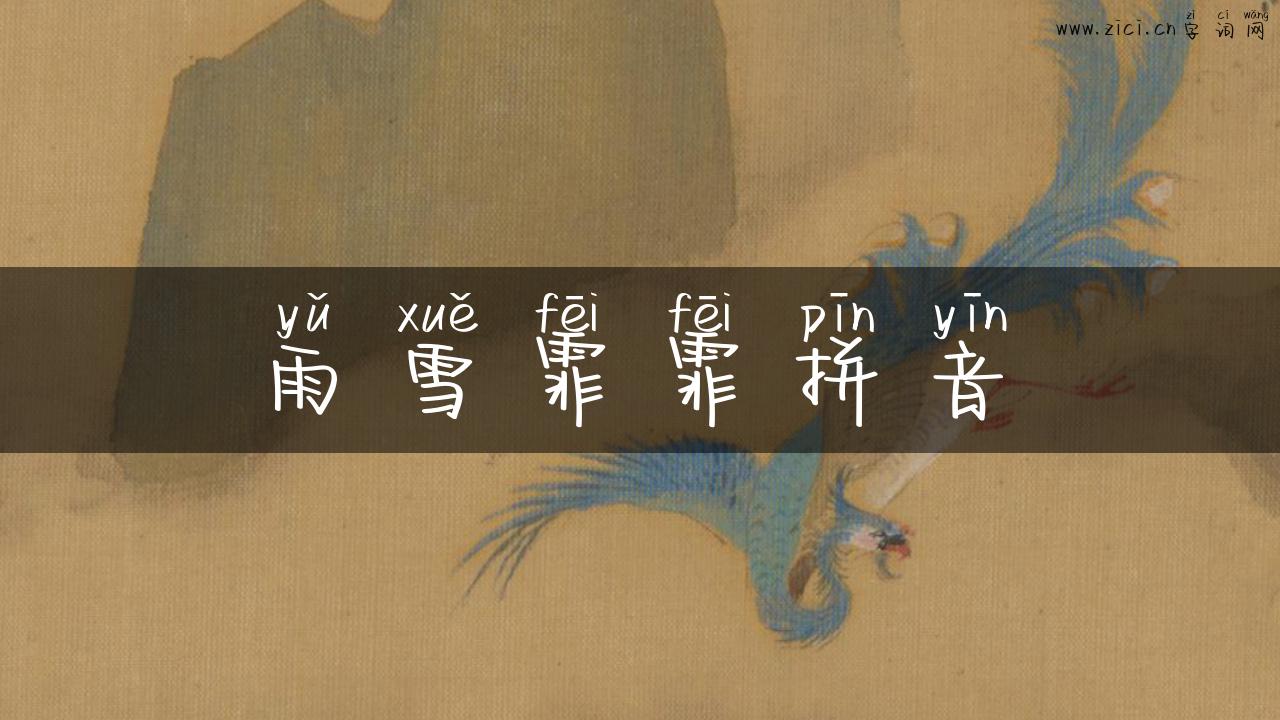 zì cí wǎng
www.zici.cn 字词网
yǔ xuě fēi fēi pīn yīn
雨雪霏霏拼音